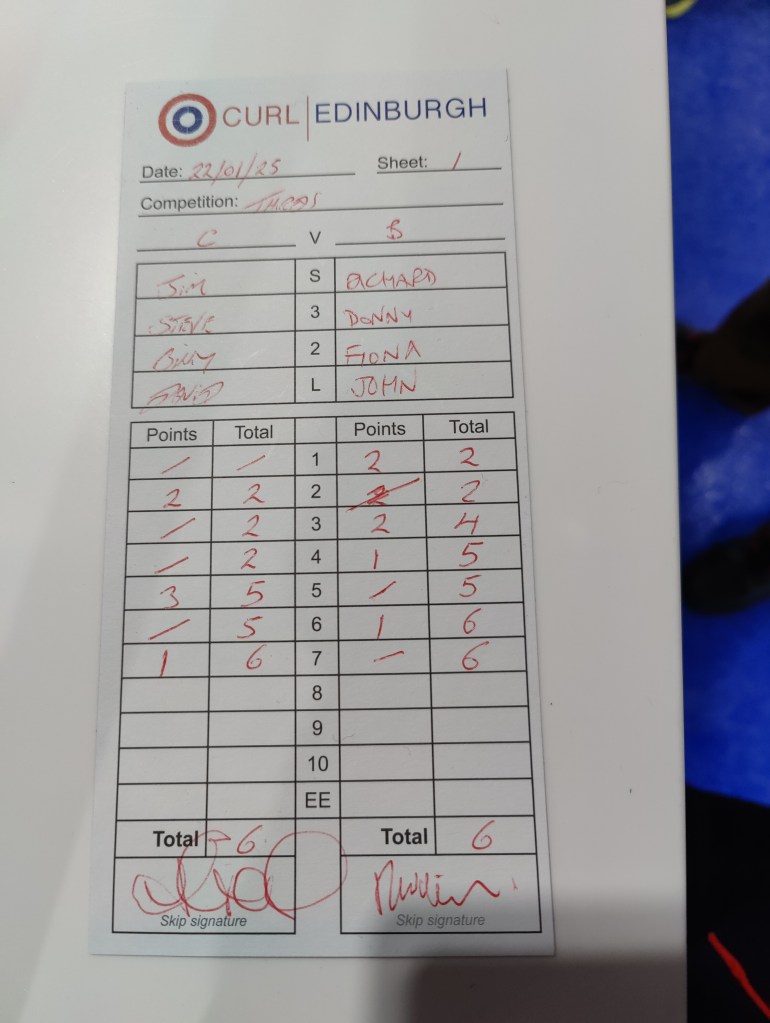 CURL | EDINBURGH
Date: 22/01/25 Sheet: 1
Competition:
C V B
Jim S RICHARD
STEVE 3 DONNY
Billy 2 FIONA
DAVID L JOHN
Points Total Points Total
/ / 1 2 2
2 2 2 2 2
/ 2 3 2 4
/ 2 4 1 5
3 5 5 / 5
/ 5 6 1 6
1 6 7 - 6
8
9
10
EE
Total 6 Total 6
Skip signature Skip signature